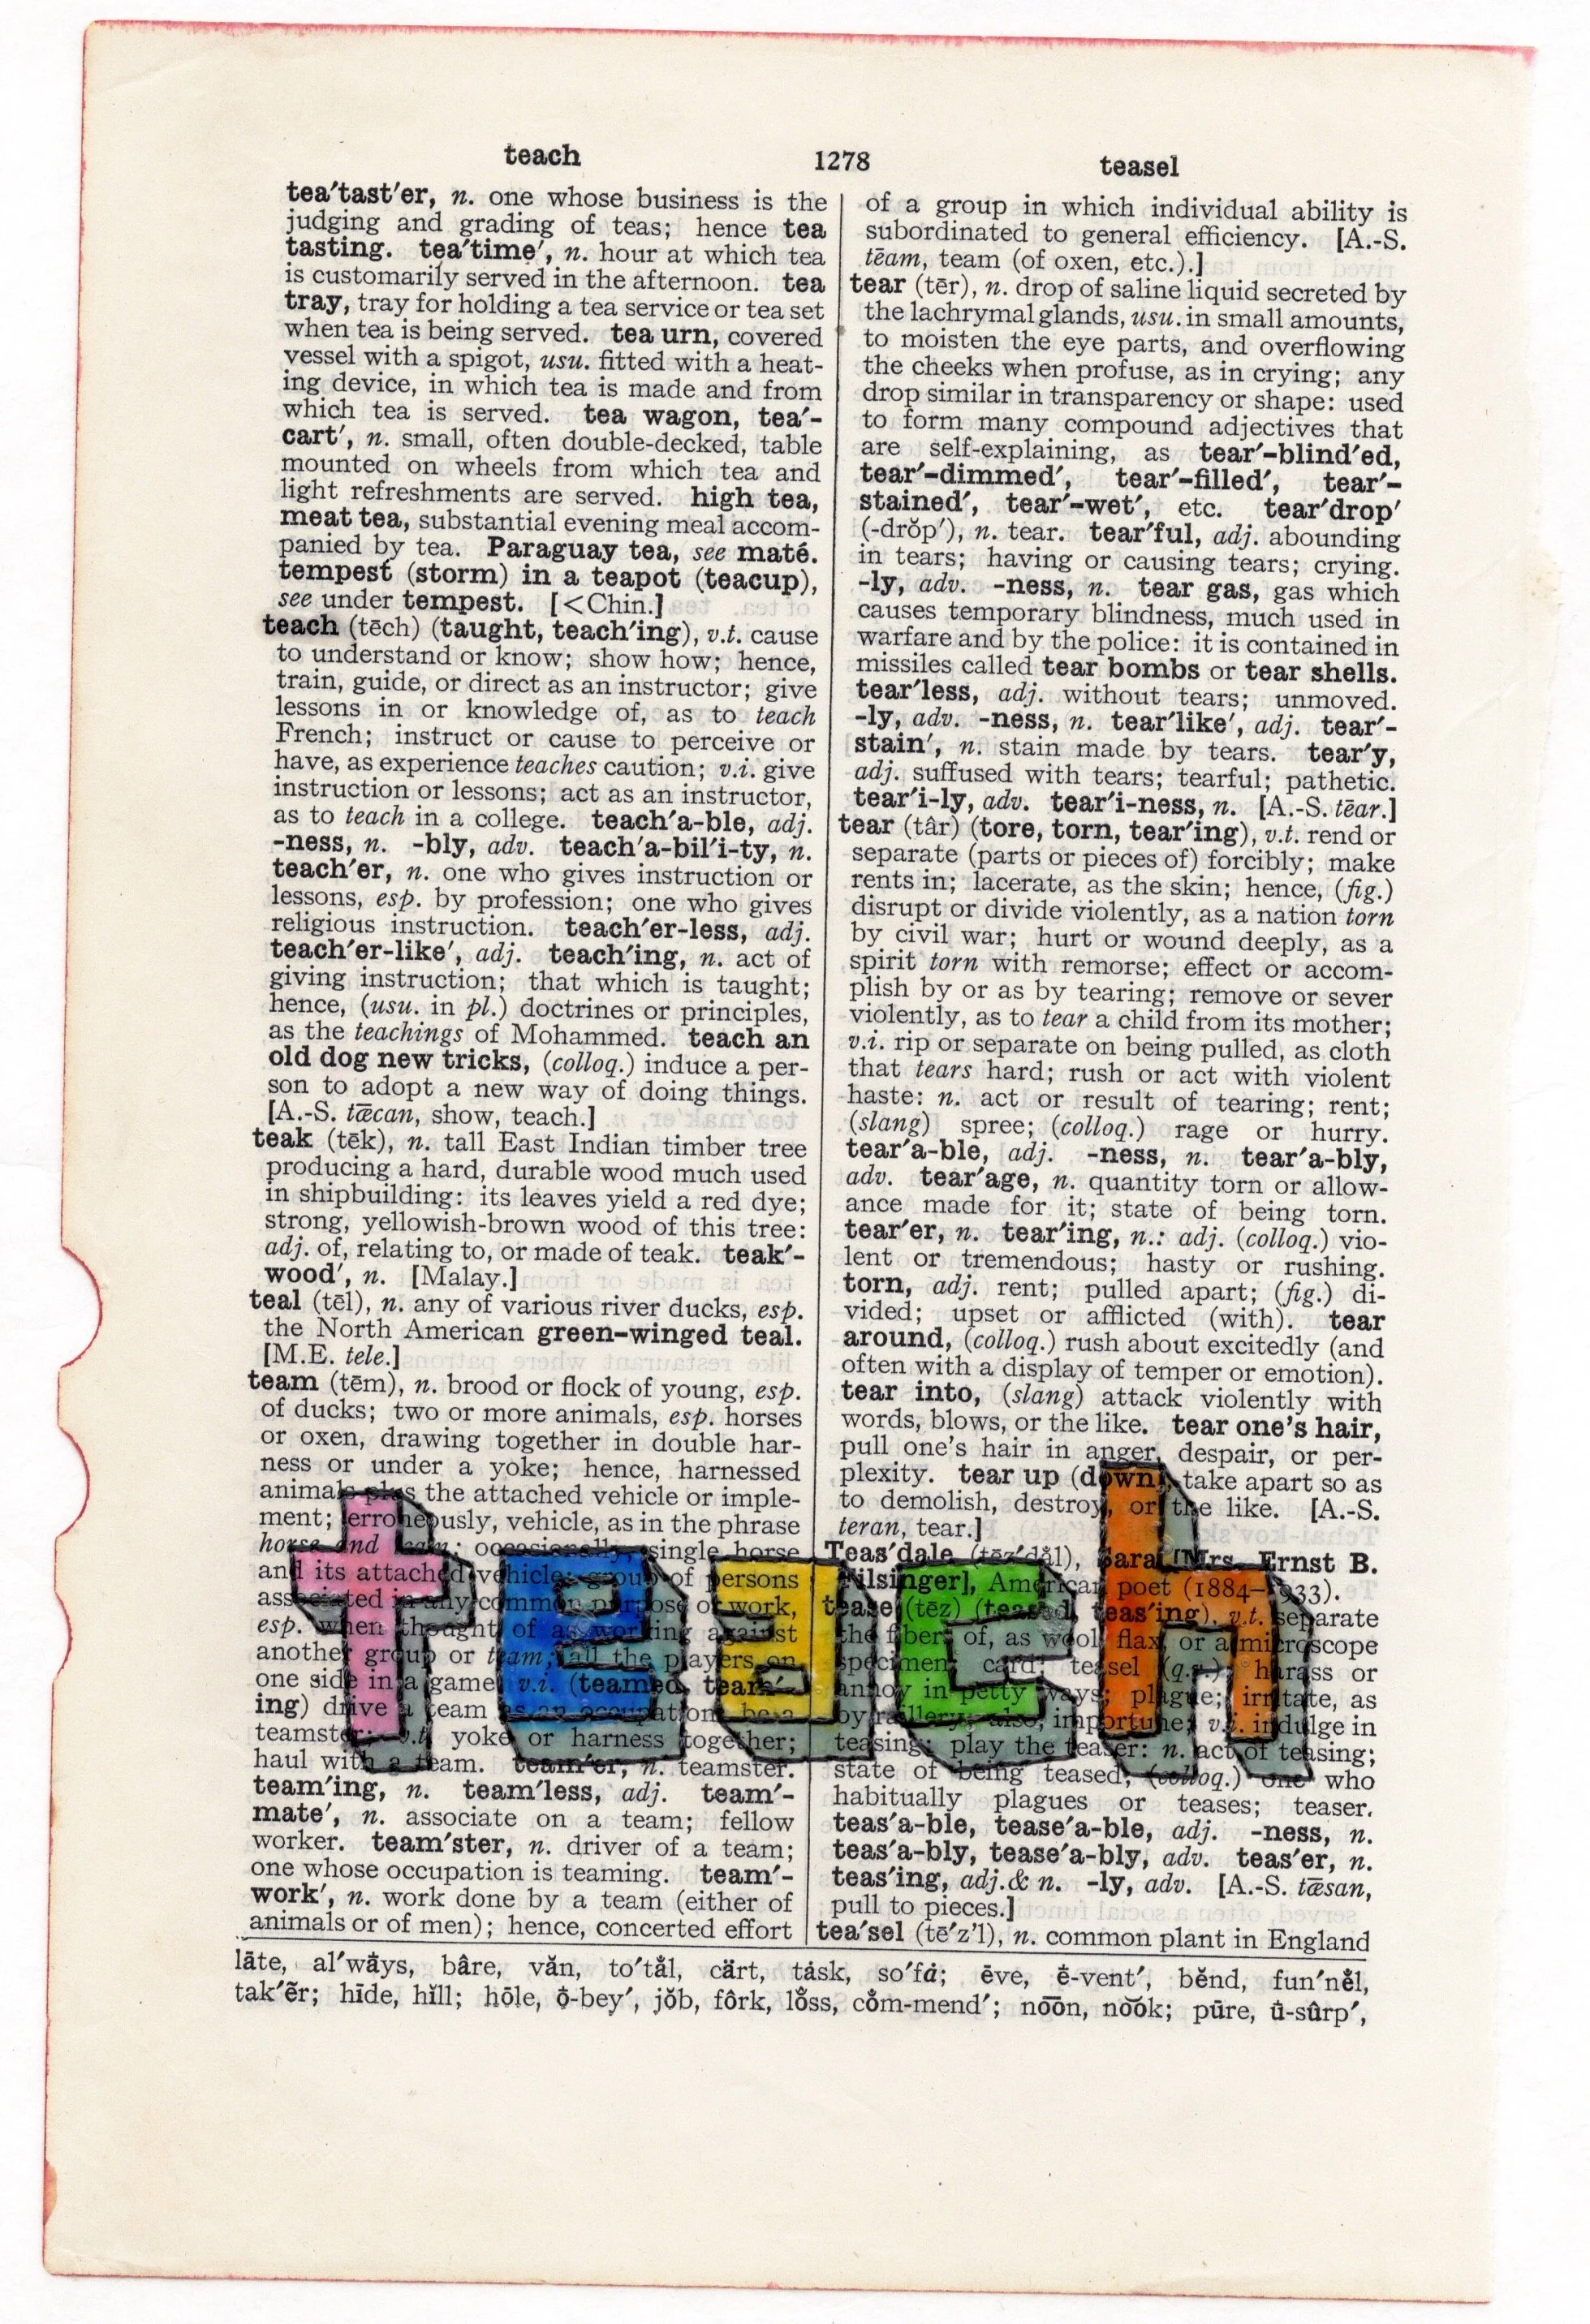 teach 1278 teasel
tea′tast′er, n. one whose business is the
judging and grading of teas; hence tea
tasting. tea′time′, n. hour at which tea
is customarily served in the afternoon. tea
tray, tray for holding a tea service or tea set
when tea is being served. tea urn, covered
vessel with a spigot, usu. fitted with a heat-
ing device, in which tea is made and from
which tea is served. tea wagon, tea′-
cart′, n. small, often double-decked, table
mounted on wheels from which tea and
light refreshments are served. high tea,
meat tea, substantial evening meal accom-
panied by tea. Paraguay tea, see maté.
tempest (storm) in a teapot (teacup),
see under tempest. [<Chin.]
teach (tēch) (taught, teach′ing), v.t. cause
to understand or know; show how; hence,
train, guide, or direct as an instructor; give
lessons in or knowledge of, as to teach
French; instruct or cause to perceive or
have, as experience teaches caution; v.i. give
instruction or lessons; act as an instructor,
as to teach in a college. teach′a-ble, adj.
-ness, n. -bly, adv. teach′a-bil′i-ty, n.
teach′er, n. one who gives instruction or
lessons, esp. by profession; one who gives
religious instruction. teach′er-less, adj.
teach′er-like′, adj. teach′ing, n. act of
giving instruction; that which is taught;
hence, (usu. in pl.) doctrines or principles,
as the teachings of Mohammed. teach an
old dog new tricks, (colloq.) induce a per-
son to adopt a new way of doing things.
[A.-S. tǣcan, show, teach.]
teak (tēk), n. tall East Indian timber tree
producing a hard, durable wood much used
in shipbuilding: its leaves yield a red dye;
strong, yellowish-brown wood of this tree:
adj. of, relating to, or made of teak. teak′-
wood′, n. [Malay.]
teal (tēl), n. any of various river ducks, esp.
the North American green-winged teal.
[M.E. tele.]
team (tēm), n. brood or flock of young, esp.
of ducks; two or more animals, esp. horses
or oxen, drawing together in double har-
ness or under a yoke; hence, harnessed
animals plus the attached vehicle or imple-
ment; erroneously, vehicle, as in the phrase
horse and team; occasionally, single horse
and its attached vehicle; group of persons
associated in any common purpose or work,
esp. when thought of as working against
another group or team; all the players on
one side in a game: v.i. (teamed, team′-
ing) drive a team as an occupation; be a
teamster: v.t. yoke or harness together;
haul with a team. team′er, n. teamster.
team′ing, n. team′less, adj. team′-
mate′, n. associate on a team; fellow
worker. team′ster, n. driver of a team;
one whose occupation is teaming. team′-
work′, n. work done by a team (either of
animals or of men); hence, concerted effort
of a group in which individual ability is
subordinated to general efficiency. [A.-S.
tēam, team (of oxen, etc.).]
tear (tēr), n. drop of saline liquid secreted by
the lachrymal glands, usu. in small amounts,
to moisten the eye parts, and overflowing
the cheeks when profuse, as in crying; any
drop similar in transparency or shape: used
to form many compound adjectives that
are self-explaining, as tear′-blind′ed,
tear′-dimmed′, tear′-filled′, tear′-
stained′, tear′-wet′, etc. tear′drop′
(-drŏp′), n. tear. tear′ful, adj. abounding
in tears; having or causing tears; crying.
-ly, adv. -ness, n. tear gas, gas which
causes temporary blindness, much used in
warfare and by the police: it is contained in
missiles called tear bombs or tear shells.
tear′less, adj. without tears; unmoved.
-ly, adv. -ness, n. tear′like′, adj. tear′-
stain′, n. stain made by tears. tear′y,
adj. suffused with tears; tearful; pathetic.
tear′i-ly, adv. tear′i-ness, n. [A.-S. tēar.]
tear (târ) (tore, torn, tear′ing), v.t. rend or
separate (parts or pieces of) forcibly; make
rents in; lacerate, as the skin; hence, (fig.)
disrupt or divide violently, as a nation torn
by civil war; hurt or wound deeply, as a
spirit torn with remorse; effect or accom-
plish by or as by tearing; remove or sever
violently, as to tear a child from its mother;
v.i. rip or separate on being pulled, as cloth
that tears hard; rush or act with violent
haste: n. act or result of tearing; rent;
(slang) spree; (colloq.) rage or hurry.
tear′a-ble, adj. -ness, n. tear′a-bly,
adv. tear′age, n. quantity torn or allow-
ance made for it; state of being torn.
tear′er, n. tear′ing, n.: adj. (colloq.) vio-
lent or tremendous; hasty or rushing.
torn, adj. rent; pulled apart; (fig.) di-
vided; upset or afflicted (with). tear
around, (colloq.) rush about excitedly (and
often with a display of temper or emotion).
tear into, (slang) attack violently with
words, blows, or the like. tear one's hair,
pull one's hair in anger, despair, or per-
plexity. tear up (down), take apart so as
to demolish, destroy, or the like. [A.-S.
teran, tear.]
Teas′dale (tēz′dål), Sara [Mrs. Ernst B.
Filsinger], American poet (1884–1933).
tease (tēz) (teased, teas′ing), v.t. separate
the fibers of, as wool, flax, or a microscope
specimen; card; teasel (q.v.); harass or
annoy in petty ways; plague; irritate, as
by raillery; also, importune; v.i. indulge in
teasing; play the teaser: n. act of teasing;
state of being teased; (colloq.) one who
habitually plagues or teases; teaser.
teas′a-ble, tease′a-ble, adj. -ness, n.
teas′a-bly, tease′a-bly, adv. teas′er, n.
teas′ing, adj.& n. -ly, adv. [A.-S. tǣsan,
pull to pieces.]
tea′sel (tē′z'l), n. common plant in England
teach
lāte, al′wåys, bâre, văn, to′tål, cärt, tásk, so′fȧ; ēve, ė̄-vent′, bĕnd, fun′nĕ̊l,
tak′ẽr; hīde, hĭll; hōle, ō̇-bey′, jŏb, fôrk, lŏ̊ss, cŏ̊m-mend′; no͞on, no͝ok; pūre, ū̇-sûrp′,